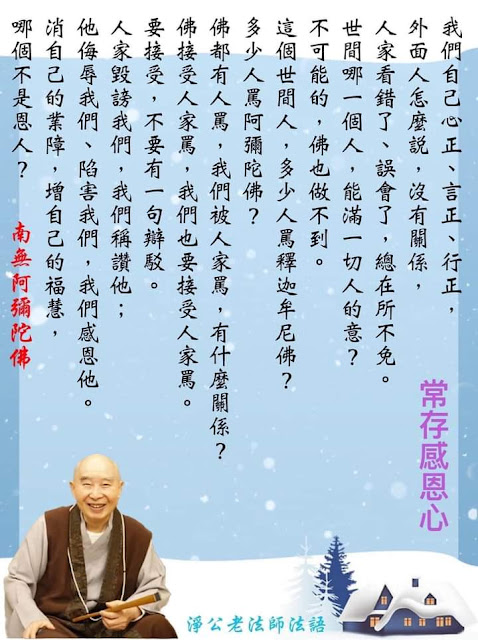 常存感恩心
我們自己心正、言正、行正，
外面人怎麼說，沒有關係，
人家看錯了、誤會了，總在所不免。
世間哪一個人，能滿一切人的意？
不可能的，佛也做不到。
這個世間人，多少人罵釋迦牟尼佛？
多少人罵阿彌陀佛？
佛都有人罵，我們被人家罵，有什麼關係？
佛接受人家罵，我們也要接受人家罵。
要接受，不要有一句辯駁。
人家毀謗我們，我們稱讚他；
他侮辱我們、陷害我們，我們感恩他。
消自己的業障，增自己的福慧，
哪個不是恩人？
南無阿彌陀佛
淨公老法師法語